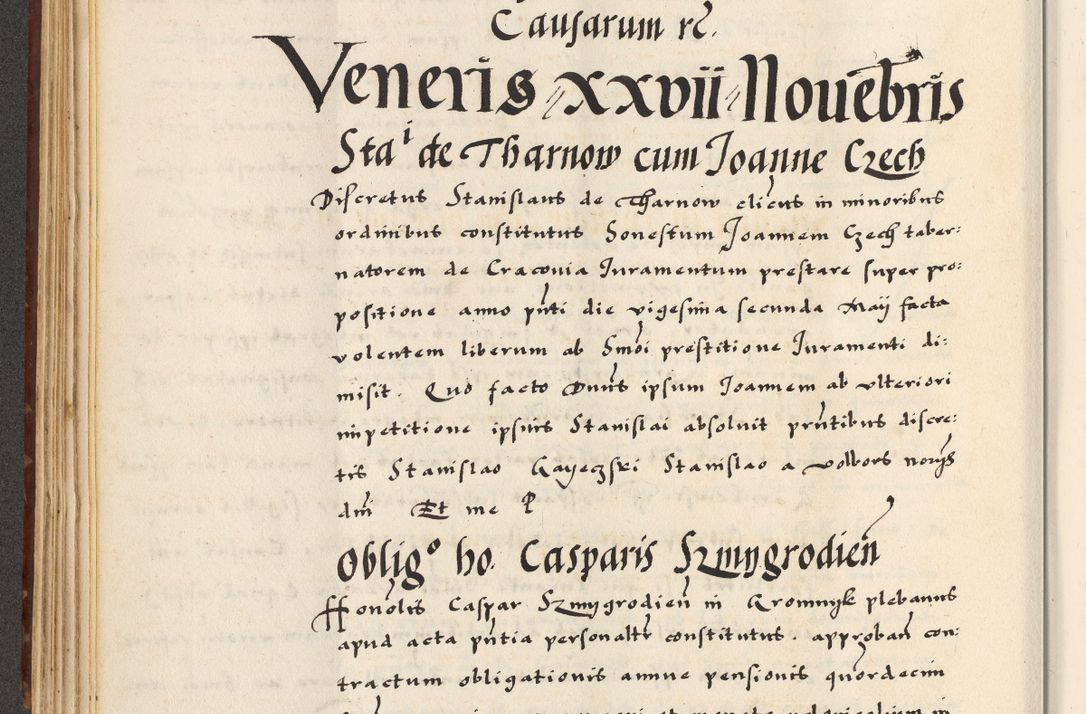 Causarum rc̃.
Veneris xxvii Nouēbris
Staⁱ de Tharnow cum Joanne Czech
Discretus Stanislaus de Tharnow clic̃us in minoribus
ordinibus constitutus Honestum Joannem Czech taber:
natorem de Cracouia Juramentum prestare super pro:
positione anno pñti die vigesima secunda Maij facta
volentem liberum ab hm̃õi prestitione Juramenti di:
misit. Quo facto Dñus ipsum Joannem ab vlteriori
impetitione ipsius Stanislai absoluit pñtibus discre:
tis Stanislao Stanislao a volbors
dñi Et me
Obligº ho. Casparis Szmygrodień
Honolis Caspar Szmygrodień in Kromnyk plebanus
apud acta pñtia personalr̃ constitutus. approbań con:
tractum obligationis annue pensionis quordecim